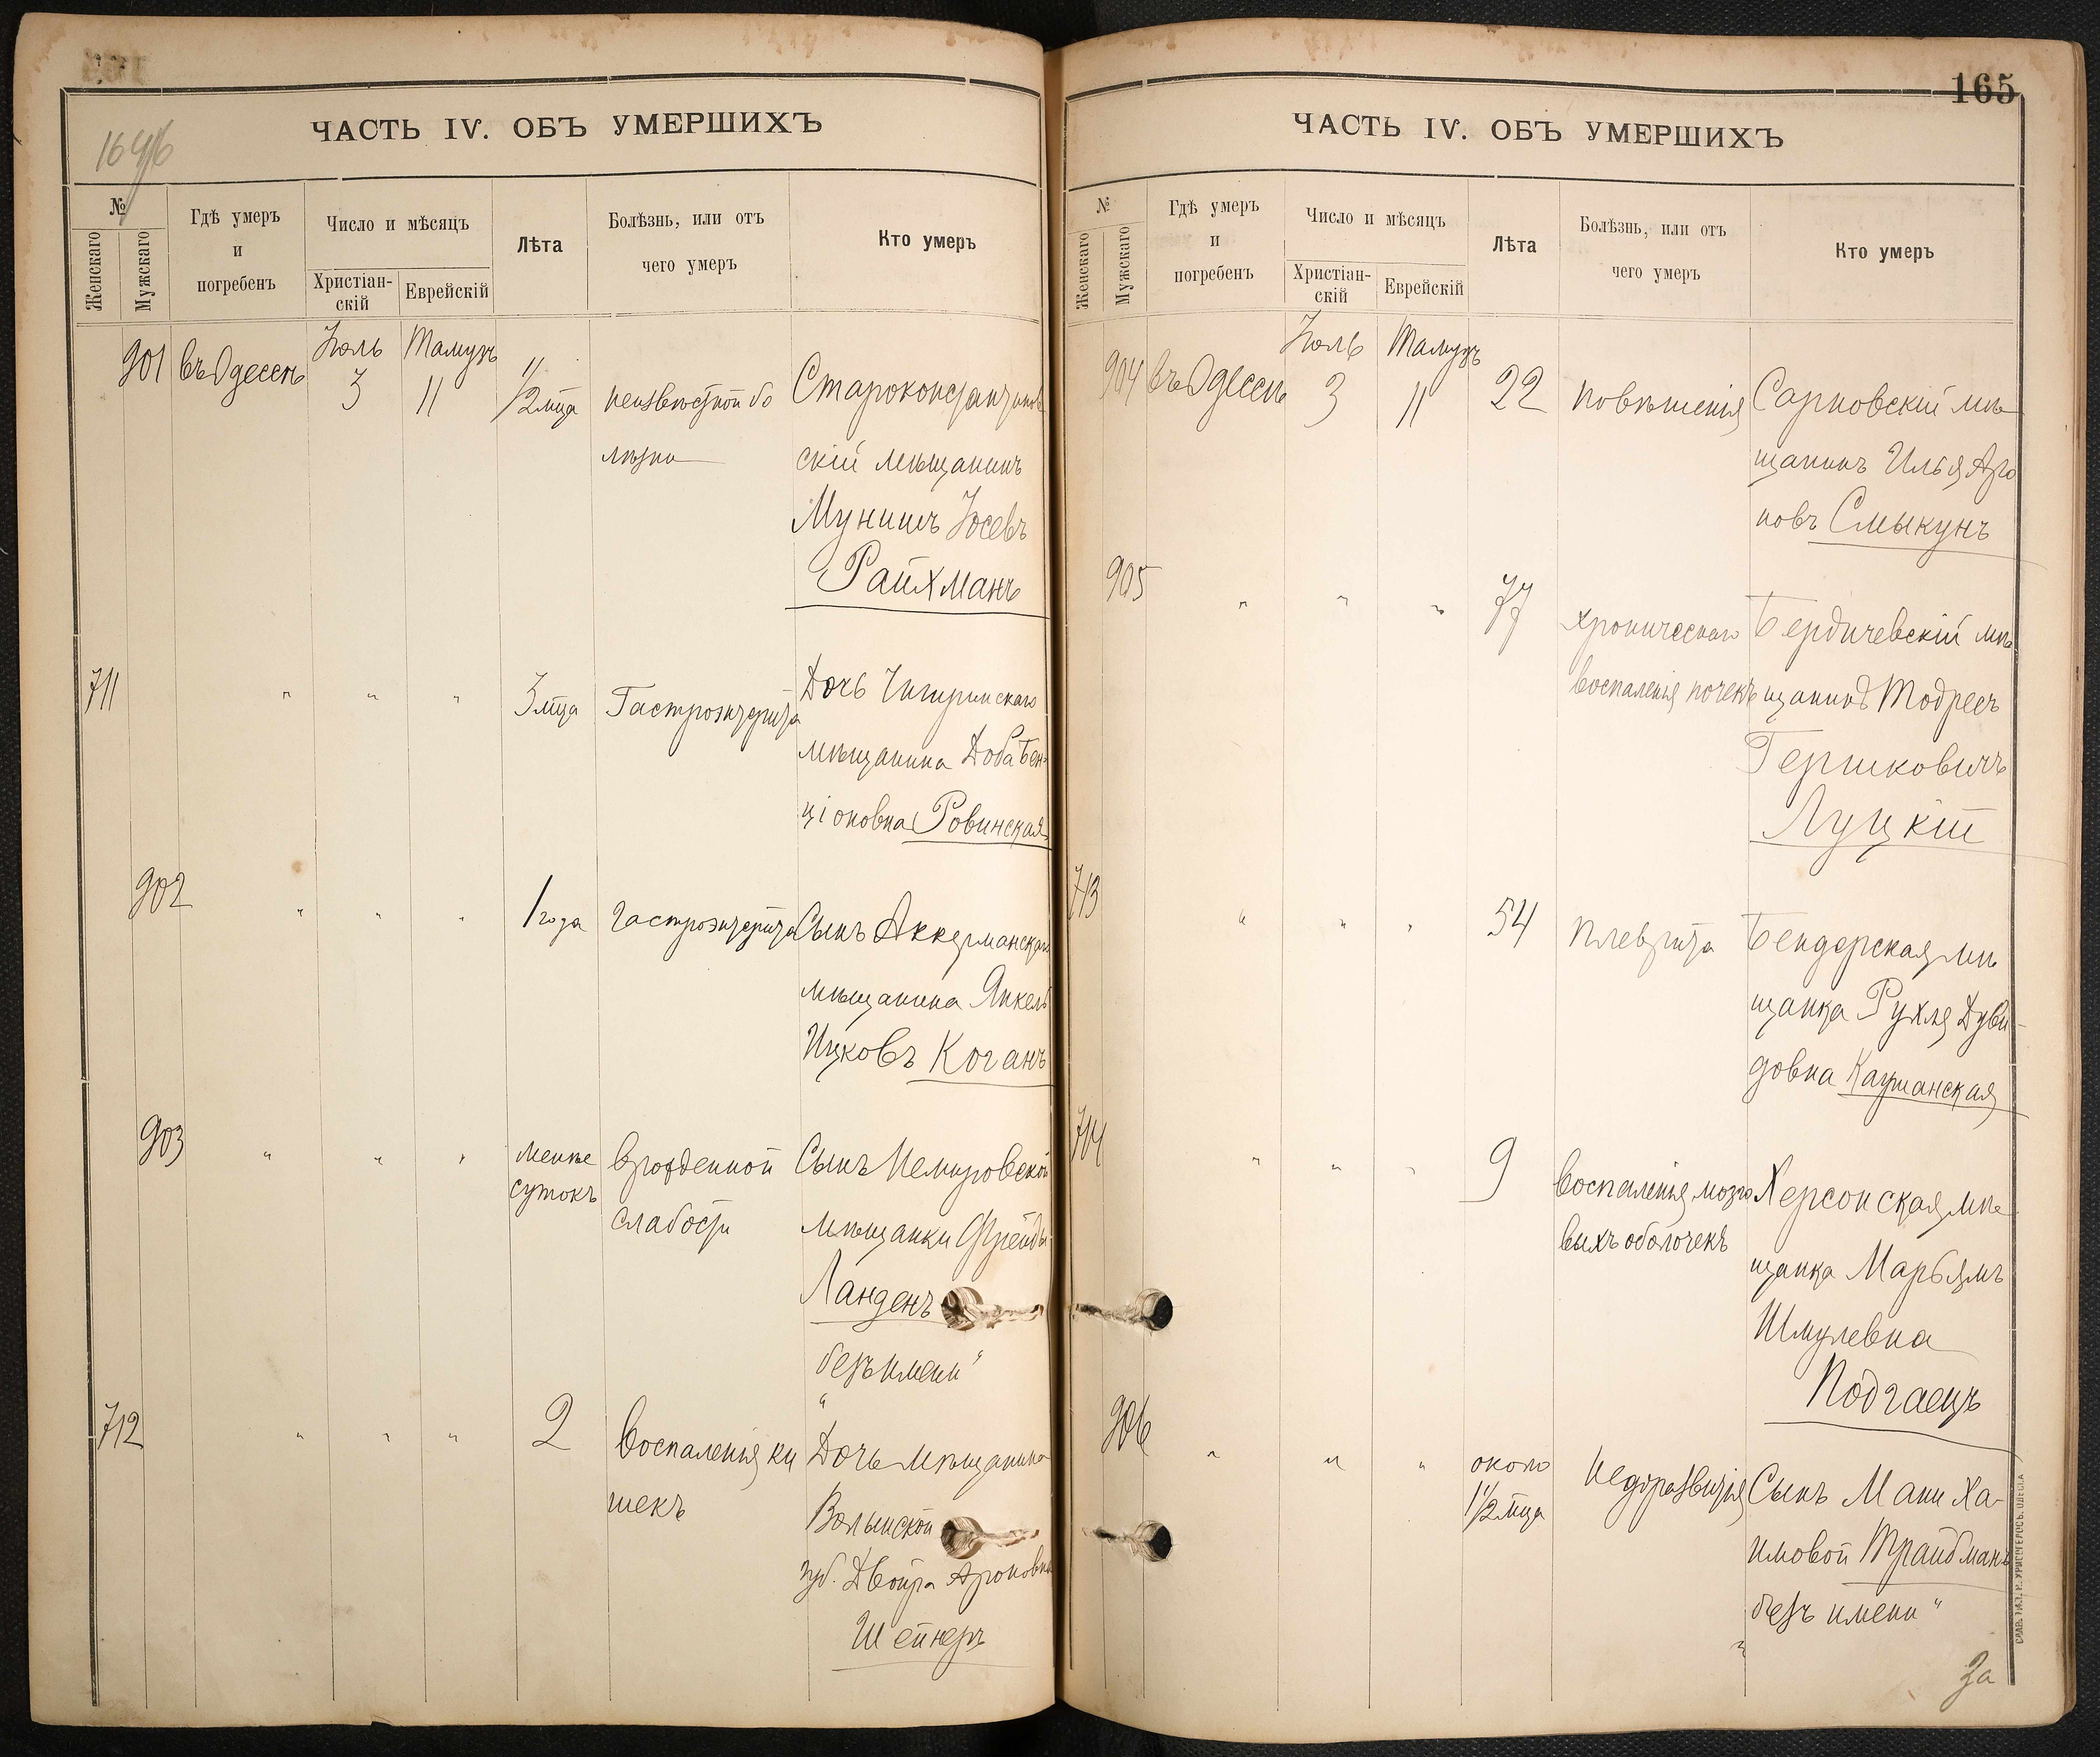 ЧАСТЬ IV. ОБЪ УМЕРШИХЪ
№
Женскаго
Мужскаго
Гдѣ умеръ
и
погребенъ
Число и мѣсяцъ
Христіан-
скій
Еврейскій
Лѣта
Болѣзнь, или отъ
чего умеръ
Кто умеръ
901 въ Одессѣ Іюль 3 Тамузъ 11 1/2 мца
неизвѣстной бо
лѣзни
Староконстантинов
скій мѣщанинъ
Мунишъ Іосевъ
Райхманъ
711 " " " 3 мца Гастроэнтерита
Дочь Чигиринскаго
мѣщанина Доба Бен-
ціоновна Ровинская
902 " " " 1 года гастроэнтерита
Сынъ Аккерманскаго
мѣщанина Янкель
Ицковъ Коганъ
903 " " " менѣе
сутокъ
врожденной
слабости
Сынъ Немировской
мѣщанки Фрейды
Ланденъ
"безъ имени"
712 " " " 2
Воспаленія ки
шекъ
Дочь мѣщанина
Волынской
губ. Двойра Ароновна
Шейнеръ
165
ЧАСТЬ IV. ОБЪ УМЕРШИХЪ
№
Женскаго
Мужскаго
Гдѣ умеръ
и
погребенъ
Число и мѣсяцъ
Христіан-
скій
Еврейскій
Лѣта
Болѣзнь, или отъ
чего умеръ
Кто умеръ
904 въ Одессѣ Іюль 3 Тамузъ 11 22 повѣшенія
Сарновскій мѣ
щанинъ Илья Аро
новъ Смыкунъ
905 " " " 77
хроническаго
воспаленія почекъ
Бердичевскій мѣ
щанинъ Тодресъ
Гершковичъ
Луцкій
713 " " " 54 плеврита
Бендерская мѣ
щанка Рухля Дуви-
довна Каушанская
714 " " " 9
воспаленія мозго
выхъ оболочекъ
Херсонская мѣ
щанка Марьямъ
Шмулевна
Подгаецъ
906 " " " около
1 1/2 мца
недоразвитія
Сынъ Мани Ха-
имовой Трайбманъ
"безъ имени"
За